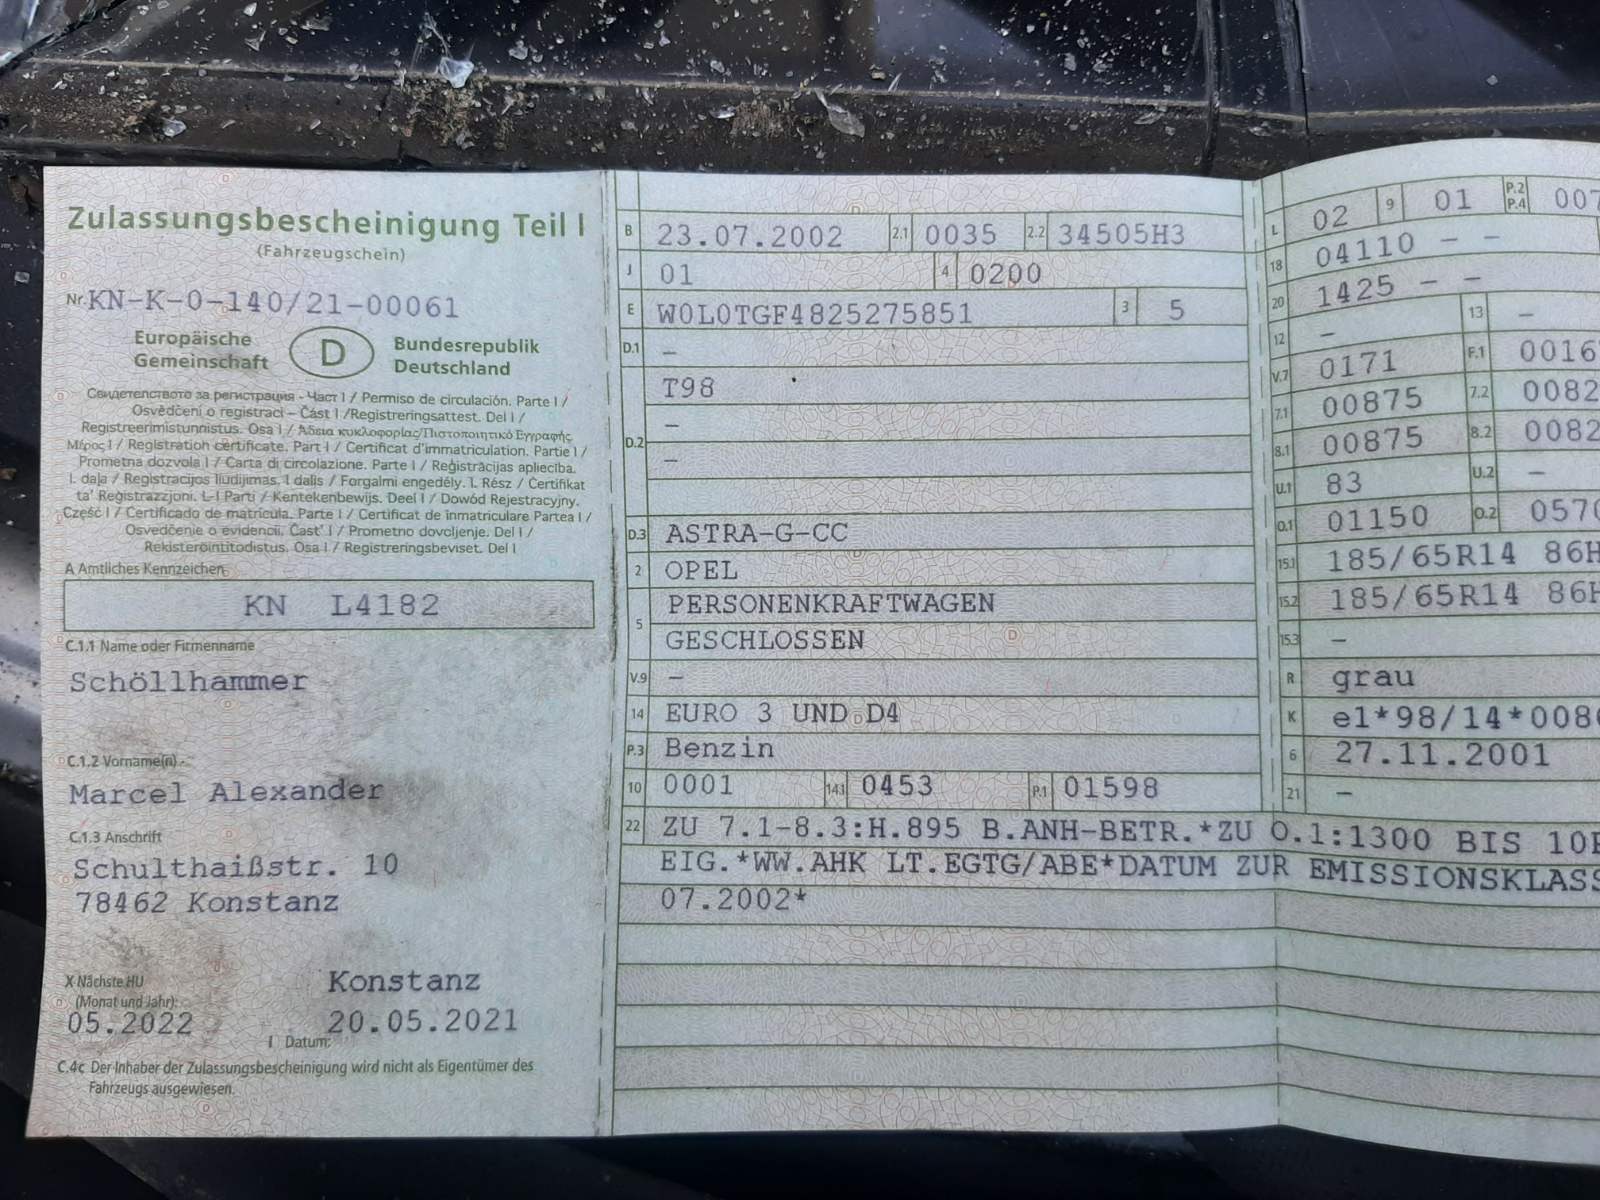 Zulassungsbescheinigung Teil I
(Fahrzeugschein)
Nr. KN-K-0-140/21-00061
Europäische Gemeinschaft
D
Bundesrepublik Deutschland
Свидетелството за регистрация - Част I / Permiso de circulación. Parte I /
Osvědčení o registraci – Část I /Registreringsattest. Del I /
Registreerimistunnistus. Osa I / Άδεια κυκλοφορίας/Πιστοποιητικό Εγγραφής
Μέρος I / Registration certificate. Part I / Certificat d'immatriculation. Partie I /
Prometna dozvola I / Carta di circolazione. Parte I / Reģistrācijas apliecība.
I. daļa / Registracijos liudijimas. I dalis / Forgalmi engedély. I. Rész / Ċertifikat
ta' Reġistrazzjoni. L-I Parti / Kentekenbewijs. Deel I / Dowód Rejestracyjny.
Część I / Certificado de matrícula. Parte I / Certificat de înmatriculare Partea I /
Osvedčenie o evidencii. Časť I / Prometno dovoljenje. Del I /
Rekisteröintitodistus. Osa I / Registreringsbeviset. Del I
A Amtliches Kennzeichen
KN L4182
C.1.1 Name oder Firmenname
Schöllhammer
C.1.2 Vorname(n)
Marcel Alexander
C.1.3 Anschrift
Schulthaißstr. 10
78462 Konstanz
X Nächste HU
(Monat und Jahr):
05.2022
Konstanz
20.05.2021
I Datum:
C.4c Der Inhaber der Zulassungsbescheinigung wird nicht als Eigentümer des
Fahrzeugs ausgewiesen.
B 23.07.2002 2.1 0035 2.2 34505H3
J 01 4 0200
E W0L0TGF4825275851 3 5
D.1 –
D.2 T98
–
–
D.3 ASTRA-G-CC
2 OPEL
5 PERSONENKRAFTWAGEN
GESCHLOSSEN
V.9 –
14 EURO 3 UND D4
P.3 Benzin
10 0001 14.1 0453 P.1 01598
22 ZU 7.1-8.3:H.895 B.ANH-BETR.*ZU O.1:1300 BIS 10
EIG.*WW.AHK LT.EGTG/ABE*DATUM ZUR EMISSIONSKLASS
07.2002*
L 02 9 01 P.2 P.4 007
18 04110 – –
20 1425 – –
12 – 13 –
V.7 0171 F.1 0016
7.1 00875 7.2 0082
8.1 00875 8.2 0082
U.1 83 U.2 –
O.1 01150 O.2 0570
15.1 185/65R14 86H
15.2 185/65R14 86H
15.3 –
R grau
K e1*98/14*008
6 27.11.2001
21 –